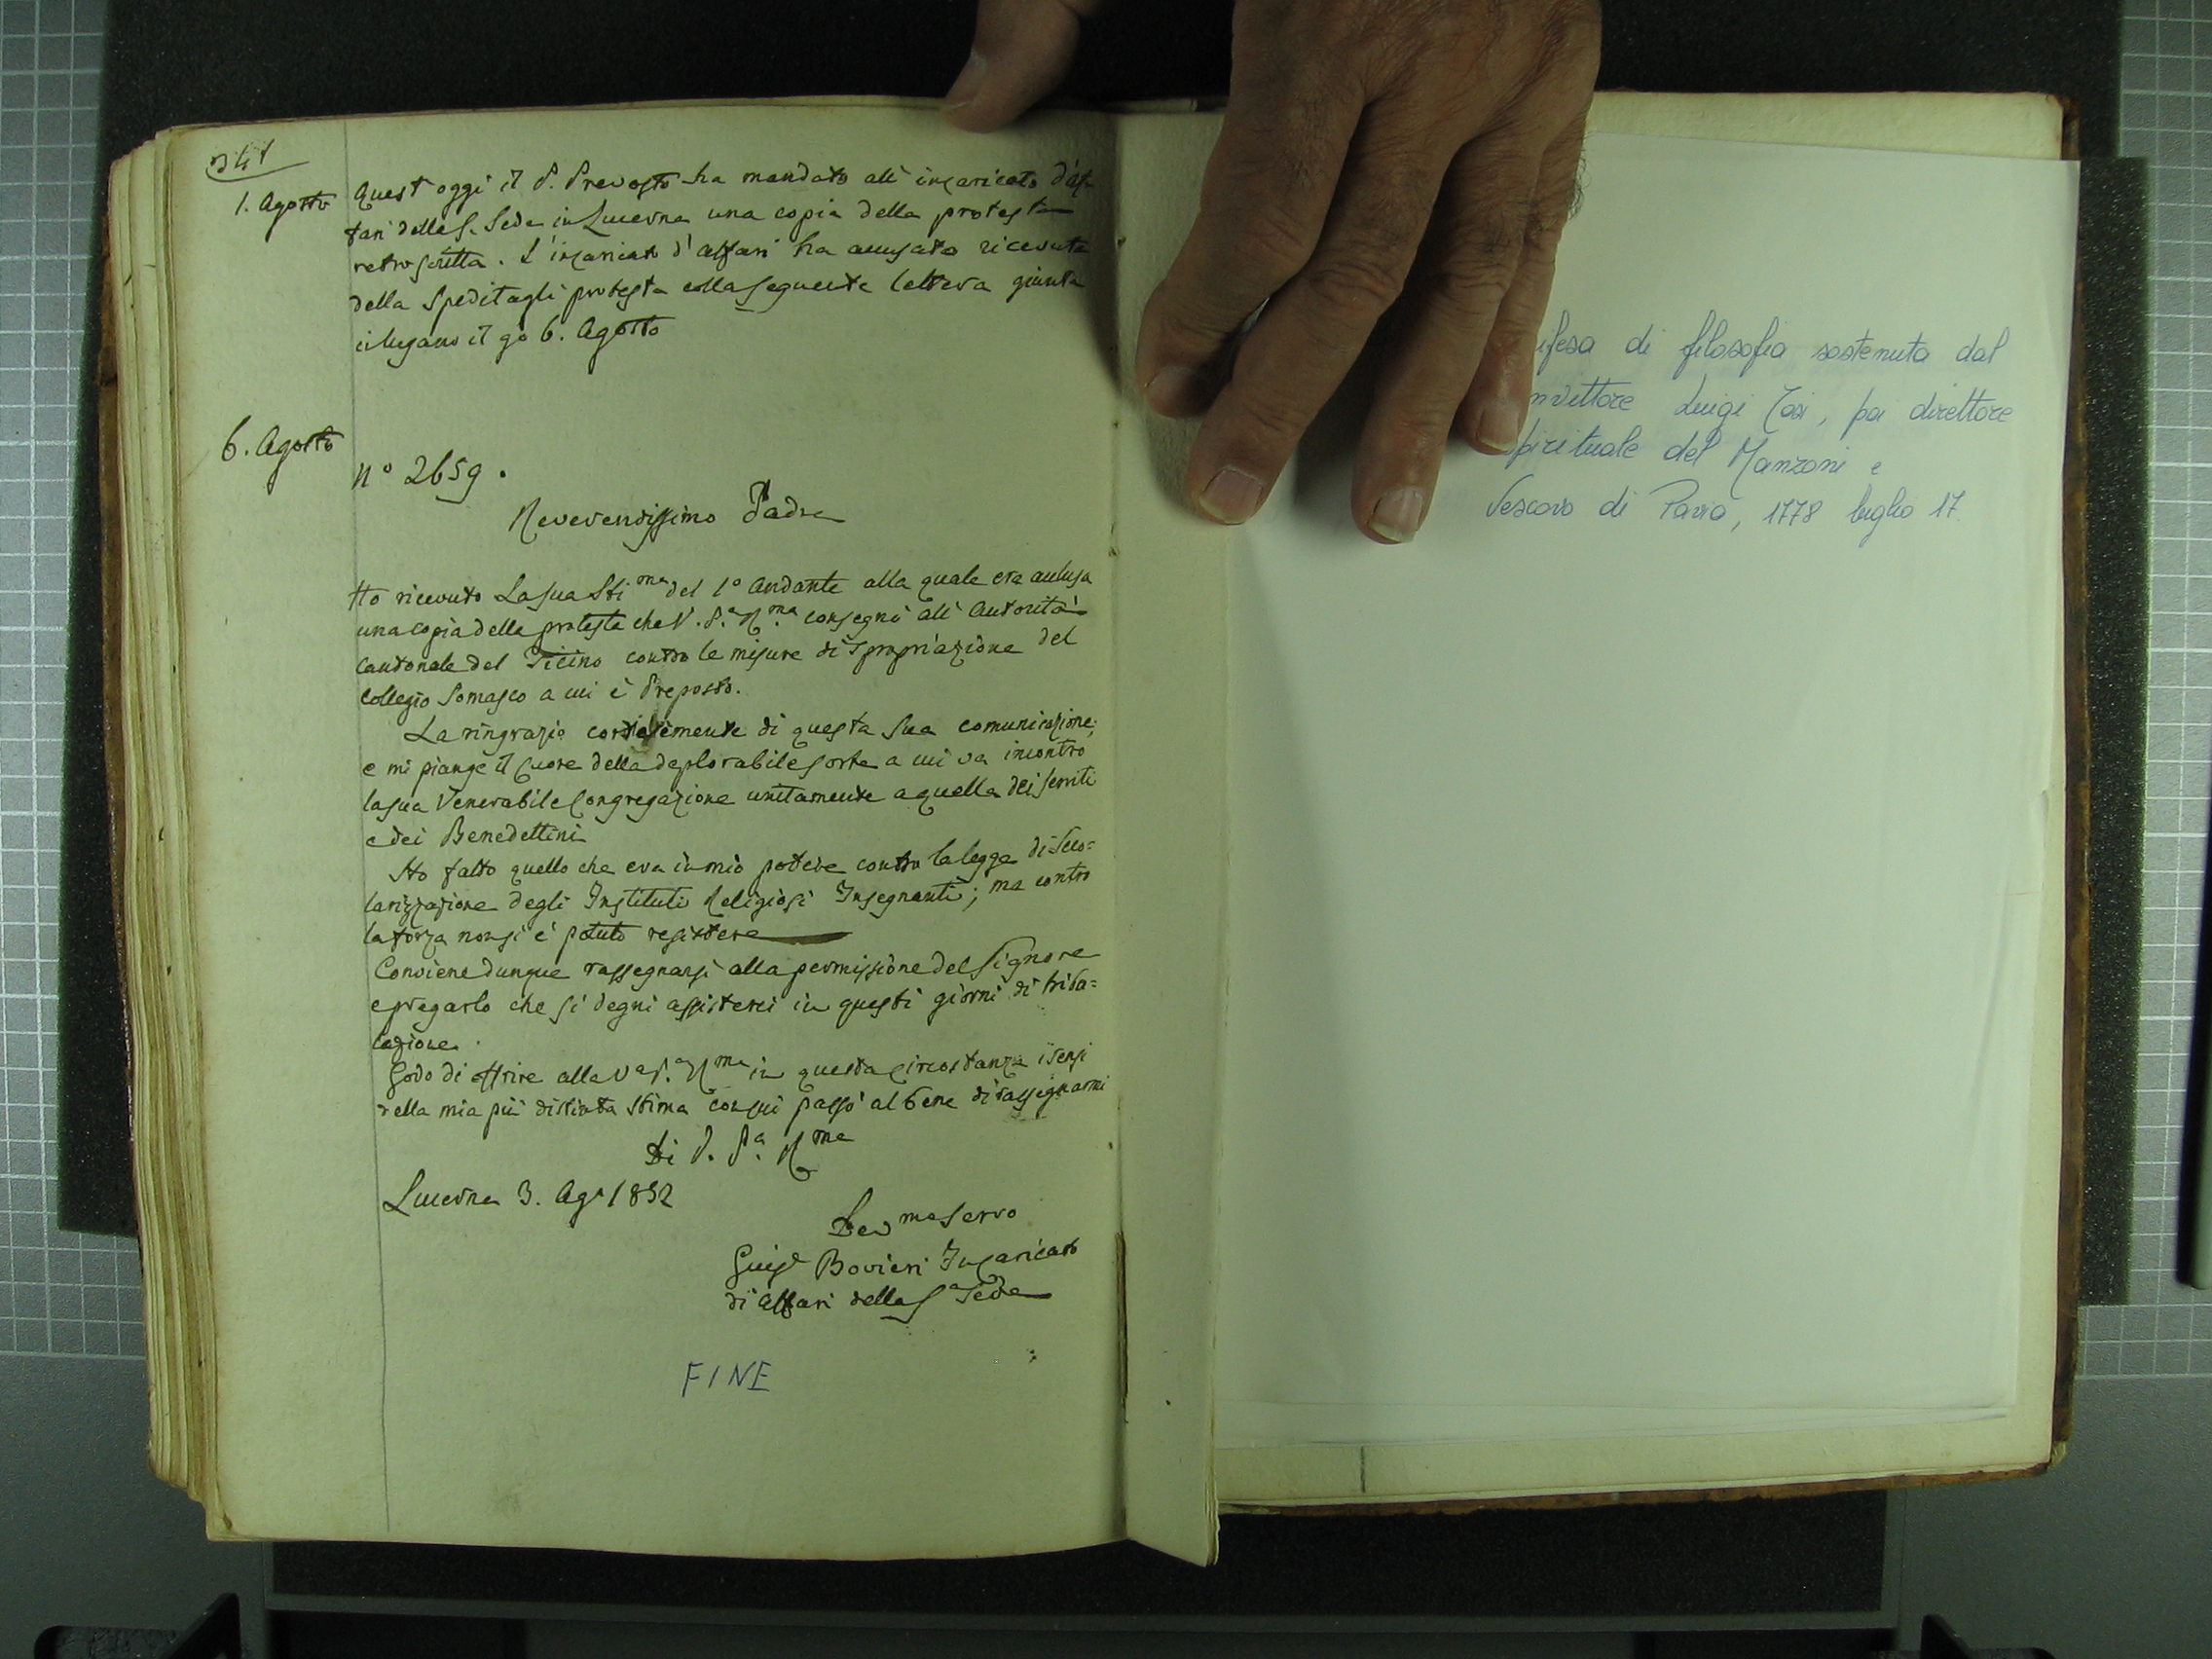 341
1. Agosto
Quest'oggi il P. Prevosto ha mandato all'incaricato d'af-
fari della S. Sede in Lucerna una copia della protesta
retroscritta. L'incaricato d'affari ha accusato ricevuta
della speditagli protesta colla seguente lettera giunta
in Lugano il gº 6. Agosto
6. Agosto
Nº 2659.
Reverendissimo Padre
Ho ricevuto La sua Stima del 1º andante alla quale era acclusa
una copia della protesta che V. P.a R.ma consegnò all'Autorità
cantonale del Ticino contro le misure di spropriazione del
collegio Somasco a cui è Preposto.
La ringrazio cortesemente di questa sua comunicazione;
e mi piange il cuore della deplorabile sorte a cui va incontro
la sua Venerabile Congregazione unitamente a quella dei Serviti
e dei Benedettini
Ho fatto quello che era in mio potere contro la legge di seco=
larizzazione degli Instituti Religiosi Insegnanti; ma contro
la forza non si è potuto resistere
Conviene dunque rassegnarsi alla permissione del Signore
e pregarlo che si degni assisterci in questi giorni di tribo=
lazione.
Godo di offrire alla Va P.a R.ma in questa circostanza i sensi
della mia più distinta stima con cui passo al bene di rassegnarmi
Di V. P.a R.ma
Lucerna 3. Ago 1852
Devmo Servo
Bovieri Incaricato
di affari della Sa Sede
FINE
ifesa di filosofia sostenuta dal
nvittore Luigi Tosi, poi direttore
spirituale del Manzoni e
Vescovo di Pavia, 1778 luglio 17